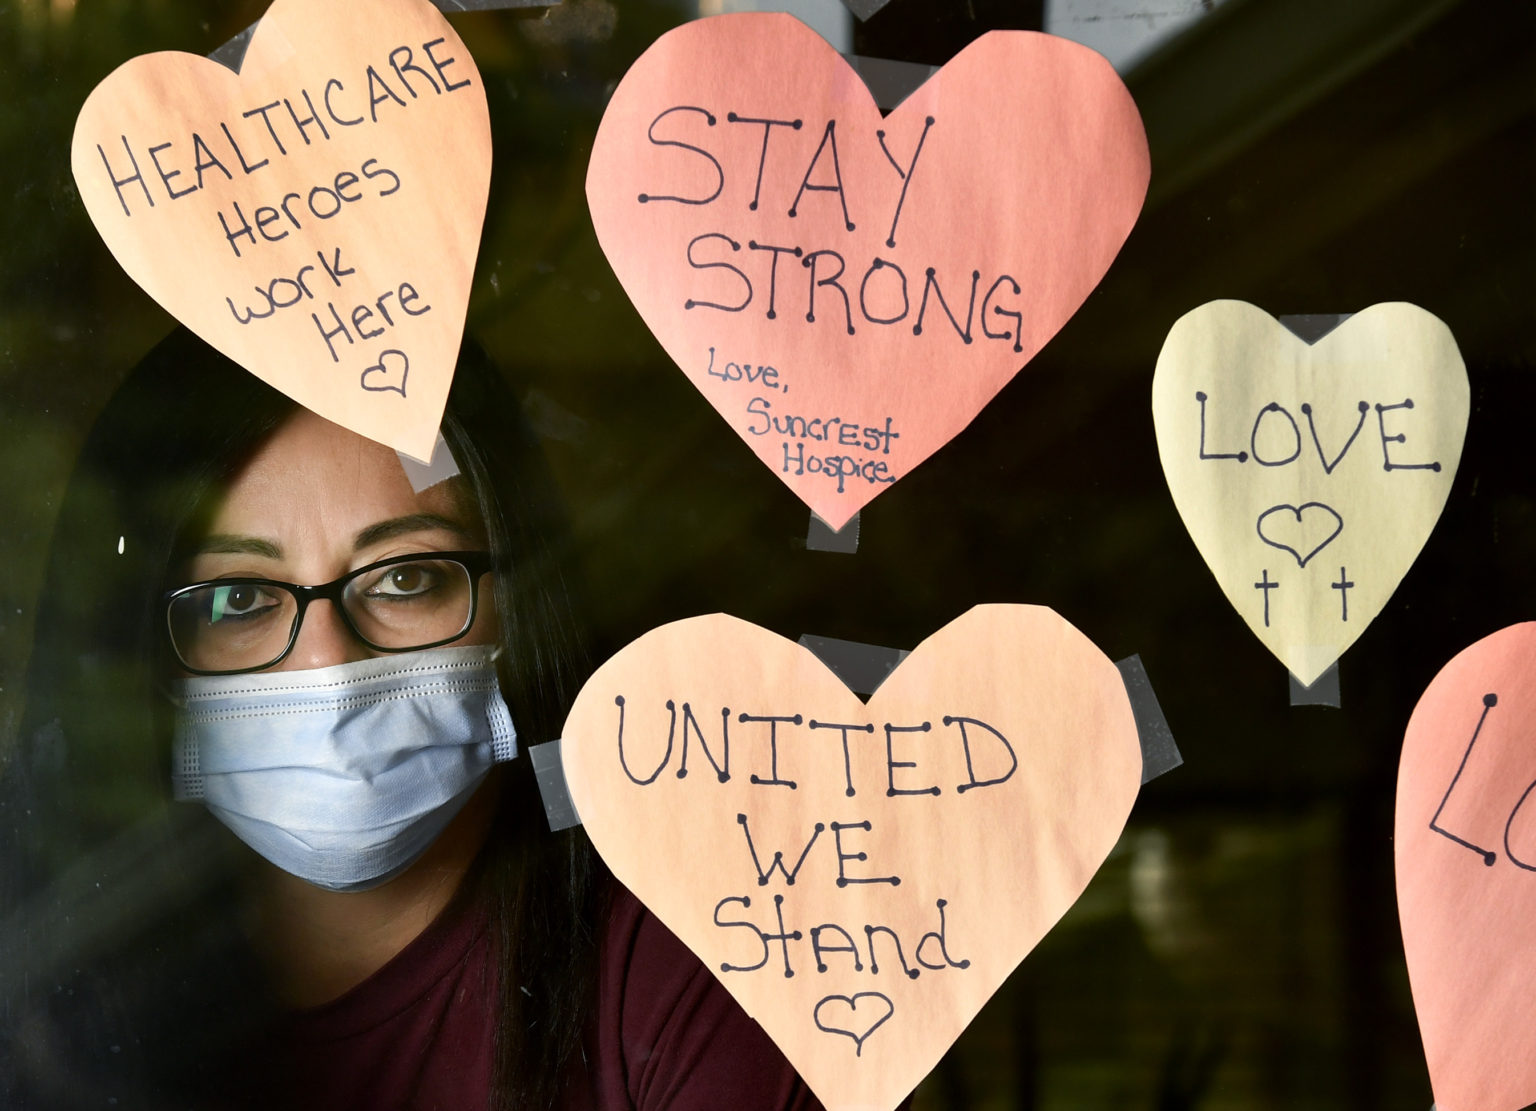 HEALTHCARE
Heroes
work
Here
STAY
STRONG
Love,
SuncrEst
Hospice
LOVE
UNITED
WE
StAnd